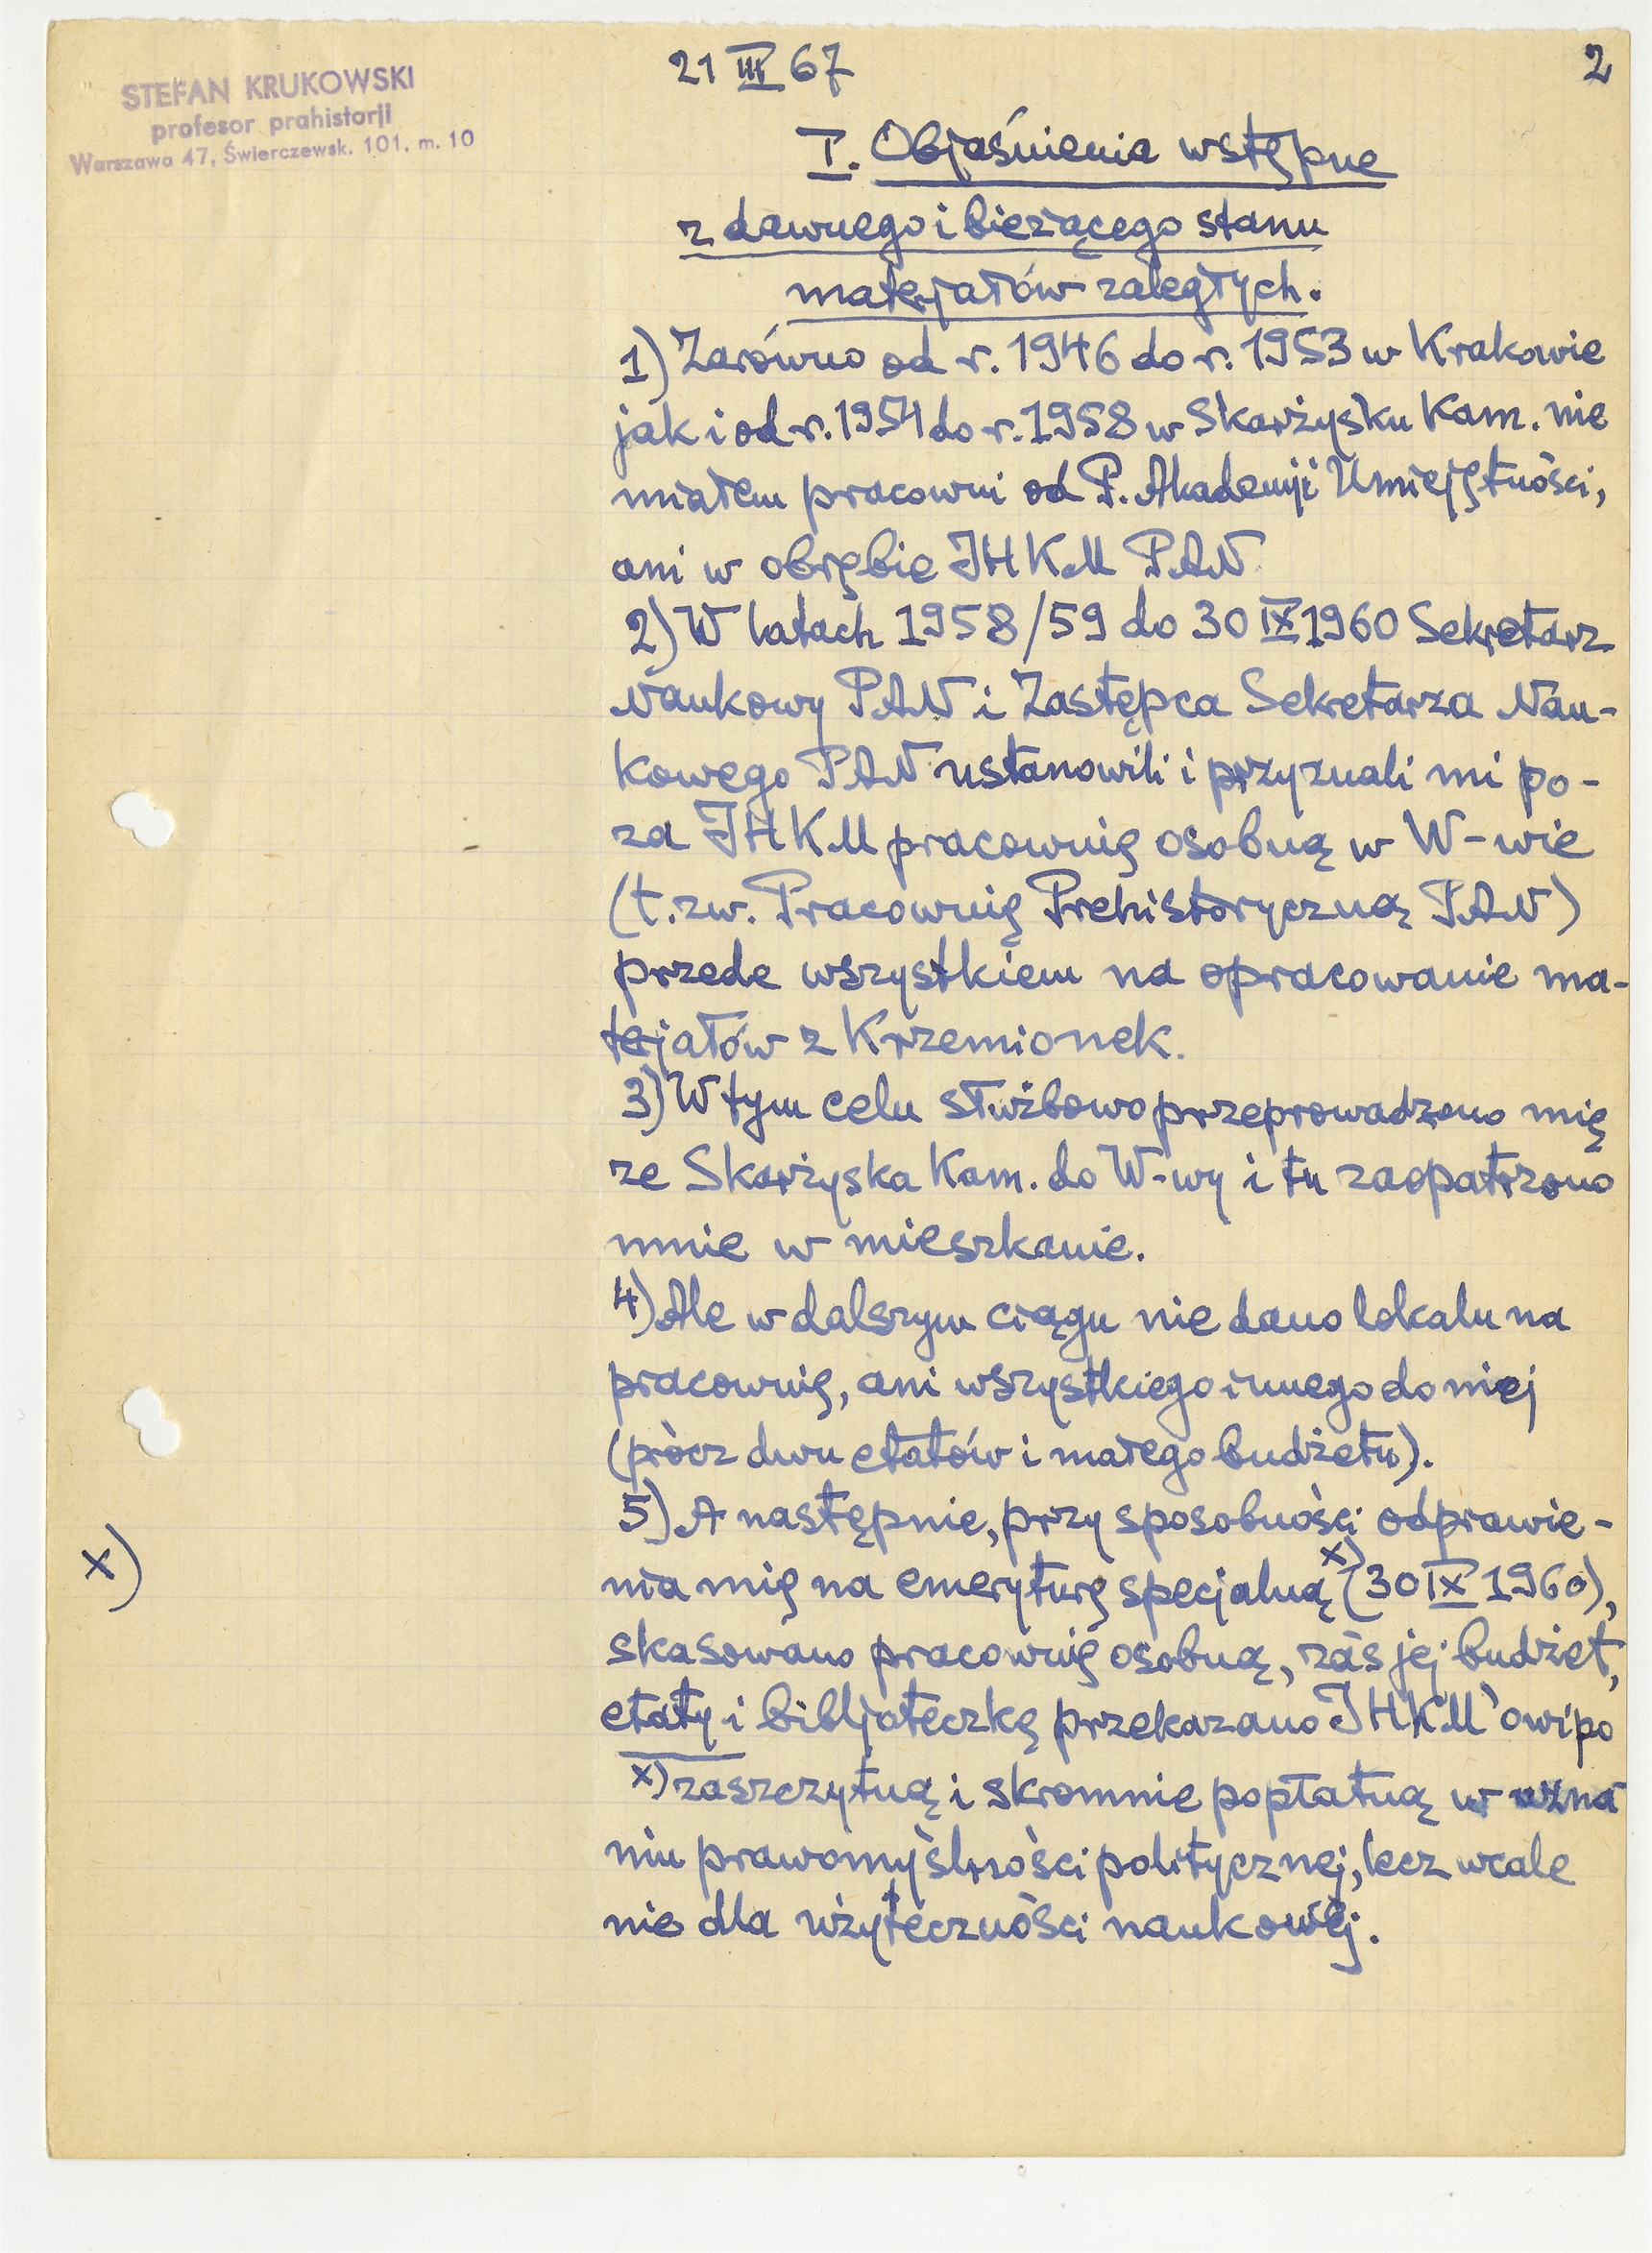 STEFAN KRUKOWSKI
profesor prahistorji
Warszawa 47, Świerczewsk. 101, m. 10
21 III 67
2
I. Objaśnienia wstępne
z dawnego i bieżącego stanu
materjałów zaległych.
1) Zarówno od r. 1946 do r. 1953 w Krakowie
jak i od r. 1954 do r. 1958 w Skarżysku Kam. nie
miałem pracowni od P. Akademji Umiejętności,
ani w obrębie IHKM PAN.
2) W latach 1958/59 do 30 IX 1960 Sekretarz
Naukowy PAN i Zastępca Sekretarza Nau-
kowego PAN ustanowili i przyznali mi po-
za IHKM pracownię osobną w W-wie
(t.zw. Pracownię Prehistoryczną PAN)
przede wszystkiem na opracowanie ma-
terjałów z Krzemionek.
3) W tym celu służbowo przeprowadzono mię
ze Skarżyska Kam. do W-wy i tu zaopatrzono
mnie w mieszkanie.
4) Ale w dalszym ciągu nie dano lokalu na
pracownię, ani wszystkiego innego do niej
(prócz dwu etatów i małego budżetu).
5) A następnie, przy sposobności odprawie-
nia mię na emeryturę specjalną x) (30 IX 1960),
x)
skasowano pracownię osobną, zaś jej budżet,
etaty i bibljoteczkę przekazano IHKM'owi po
x) zaszczytną i skromnie popłatną w uzna
niu prawomyślności politycznej, lecz wcale
nie dla użyteczności naukowej.